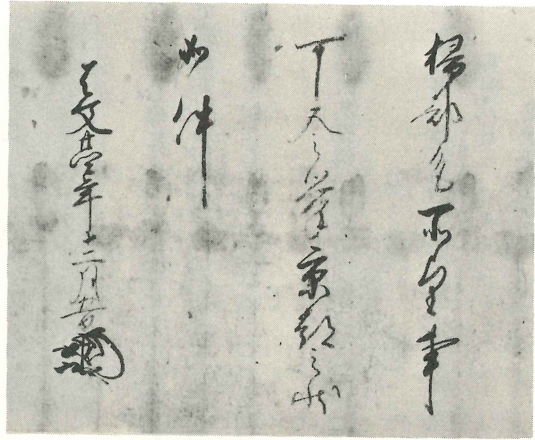 掃部允所望事
可令挙京都之状
如件
天文年十二月日